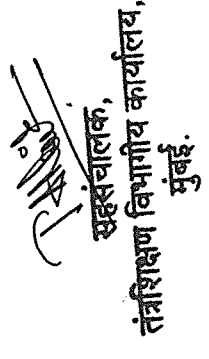 सहसंचालक,
तंत्रशिक्षण विभागीय कार्यालय,
मुंबई.